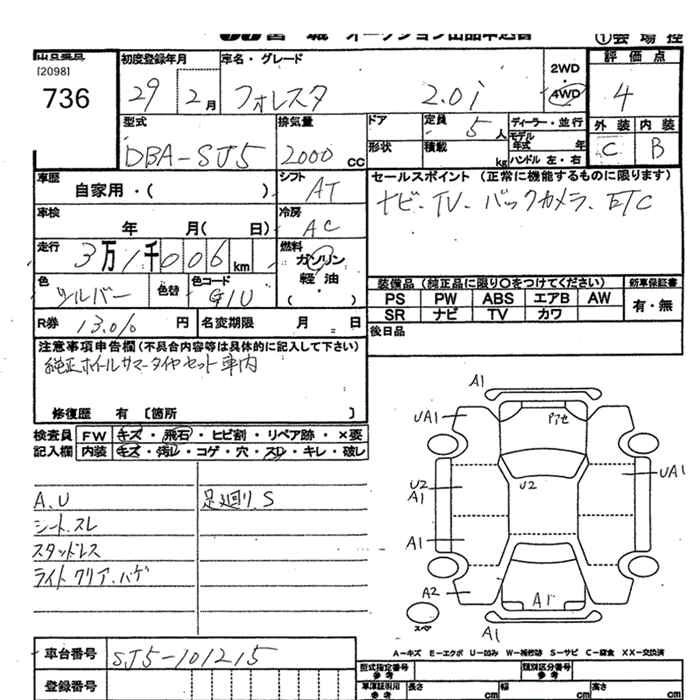 宮城 オークション出品申込書 ①会場控
出品番号
[2098]
736
初度登録年月
29 2月
車名・グレード
フォレスタ 2.0i
2WD
4WD
評価点
4
外装 内装
C B
型式
DBA-SJ5
排気量
2000 cc
ドア
形状
定員
5人
積載
kg
ディーラー・並行
モデル
年式 年
ハンドル 左・右
車歴
自家用・( )
シフト
AT
セールスポイント (正常に機能するものに限ります)
ナビ-TV-バックカメラ-ETC
車検
年 月( 日)
冷房
AC
走行
3万1千006km
燃料
ガソリン
軽油
( ・ )
色
シルバー
色替
色コード
G1U
装備品 (純正品に限り○をつけてください)
PS PW ABS エアB AW
SR ナビ TV カワ
新車保証書
有・無
R券 13.0% 円
名変期限 月 日
後日品
注意事項申告欄 (不具合内容等は具体的に記入して下さい)
純正ホイルサマータイヤセット車内
修復歴 有 〔箇所 〕
検査員
記入欄
FW キズ・飛石・ヒビ割・リペア跡・×要
内装 キズ・汚レ・コゲ・穴・スレ・キレ・破レ
A.U
シート.スレ
スタッドレス
ライトクリア.ハゲ
足廻リS
A1
UA1
アセ
U2
A1
U2
UA1
A1
A2
A1
A1
スペア
A-キズ E-エクボ U-凹み W-補修跡 S-サビ C-腐食 XX-交換済
車台番号
SJ5-101215
登録番号
型式指定番号
参考
類別区分番号
参考
車庫証明用
参考
長さ cm
幅 cm
高さ cm